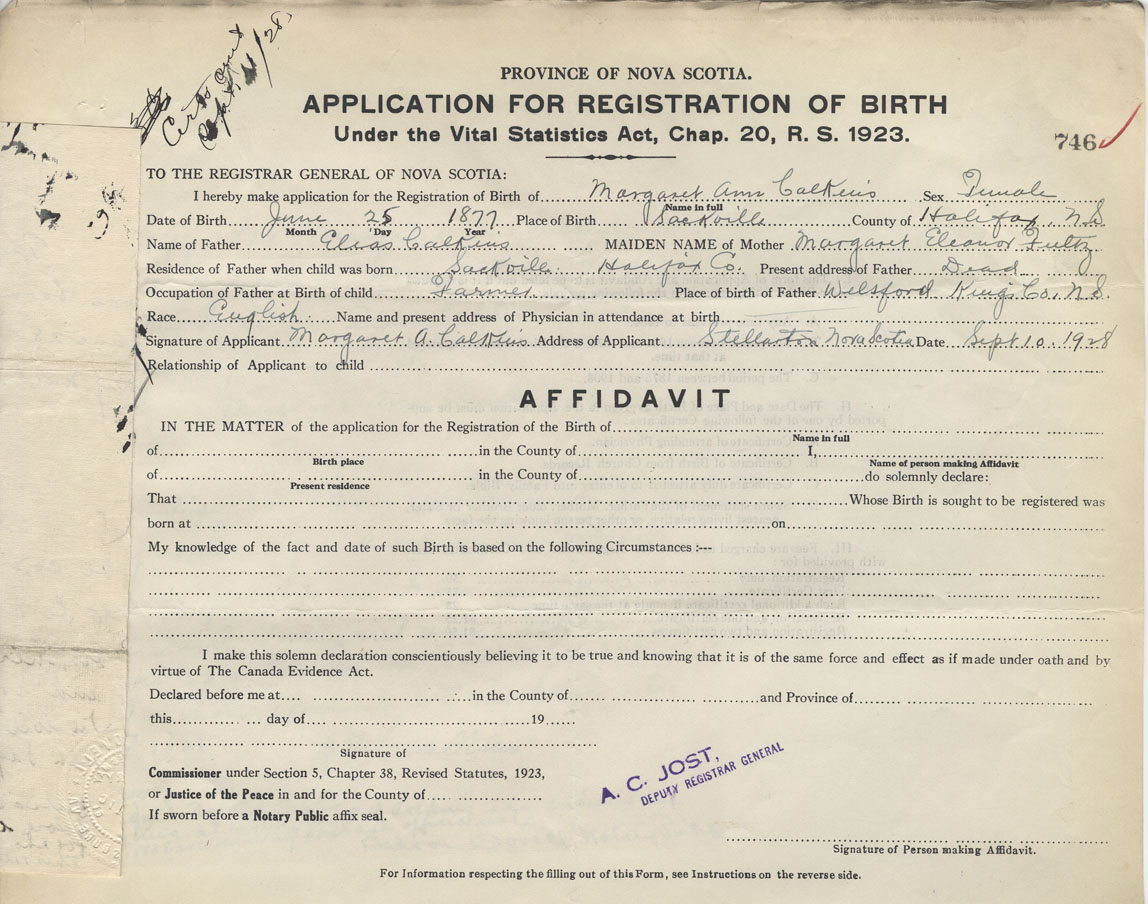 Certs Sent
Sept 11/28
PROVINCE OF NOVA SCOTIA.
APPLICATION FOR REGISTRATION OF BIRTH
Under the Vital Statistics Act, Chap. 20, R. S. 1923.
746
TO THE REGISTRAR GENERAL OF NOVA SCOTIA:
I hereby make application for the Registration of Birth of Margaret Ann Calkins Sex Female
Name in full
Date of Birth June 25 1877 Place of Birth Sackville County of Halifax, N.S.
Month Day Year
Name of Father Elias Calkins MAIDEN NAME of Mother Margaret Eleanor Fultz
Residence of Father when child was born Sackville Halifax Co. Present address of Father Dead
Occupation of Father at Birth of child Farmer Place of birth of Father Wilsford Kings Co. N.S.
Race English Name and present address of Physician in attendance at birth
Signature of Applicant Margaret A. Calkins Address of Applicant Stellarton Nova Scotia Date Sept 10. 1928
Relationship of Applicant to child
AFFIDAVIT
IN THE MATTER of the application for the Registration of the Birth of
Name in full
of in the County of I,
Birth place Name of person making Affidavit
of in the County of do solemnly declare:
Present residence
That Whose Birth is sought to be registered was
born at on
My knowledge of the fact and date of such Birth is based on the following Circumstances :---
I make this solemn declaration conscientiously believing it to be true and knowing that it is of the same force and effect as if made under oath and by
virtue of The Canada Evidence Act.
Declared before me at in the County of and Province of
this day of 19
Signature of
Commissioner under Section 5, Chapter 38, Revised Statutes, 1923,
or Justice of the Peace in and for the County of
If sworn before a Notary Public affix seal.
A. C. JOST,
DEPUTY REGISTRAR GENERAL
Signature of Person making Affidavit.
For Information respecting the filling out of this Form, see Instructions on the reverse side.